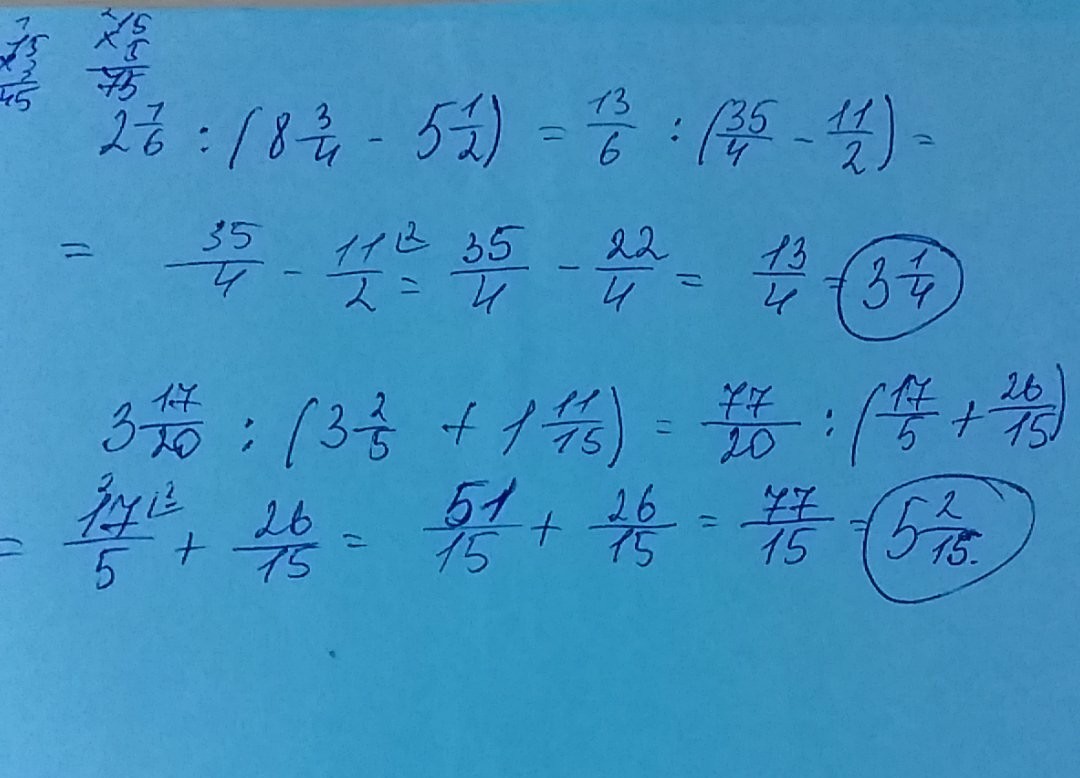 15 × 3 45
15 × 5 75
2 1/6 : (8 3/4 - 5 1/2) = 13/6 : (35/4 - 11/2) =
= 35/4 - 11/2 = 35/4 - 22/4 = 13/4 = 3 1/4
3 17/20 : (3 2/5 + 1 11/15) = 77/20 : (17/5 + 26/15)
= 17/5 + 26/15 = 51/15 + 26/15 = 77/15 = 5 2/15.